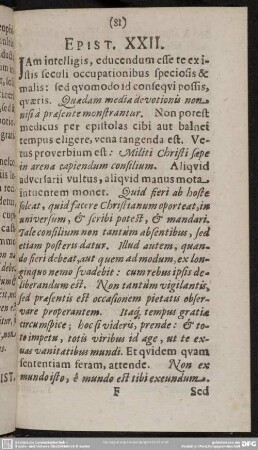 (81)
EPIST. XXII.
JAm intelligis, educendum esse te ex i-
stis seculi occupationibus speciosis &
malis: sed qvomodo id conseqvi possis,
qværis. Quædam media devotionis non-
nisi à præsente monstrantur. Non potest
medicus per epistolas cibi aut balnei
tempus eligere, vena tangenda est. Ve-
tus proverbium est: Militi Christi sæpe
in arena capiendum consilium. Aliqvid
adversarii vultus, aliqvid manus mota
intuentem monet. Quid fieri ab hoste
soleat, quid facere Christianum oporteat, in
universum, & scribi potest, & mandari.
Tale consilium non tantùm absentibus, sed
etiam posteris datur. Illud autem, quan-
do fieri debeat, aut quem ad modum, ex lon-
ginquo nemo svadebit: cum rebus ipsis de-
liberandum est. Non tantùm vigilantis,
sed præsentis est occasionem pietatis obser-
vare properantem. Itaq; tempus gratiæ
circumspice; hoc si videris, prende: & to-
to impetu, totis viribus id age, ut te ex-
uas vanitatibus mundi. Et qvidem qvam
sententiam feram, attende. Non ex
mundo isto, è mundo est tibi exeundum.
F Sed
IST.